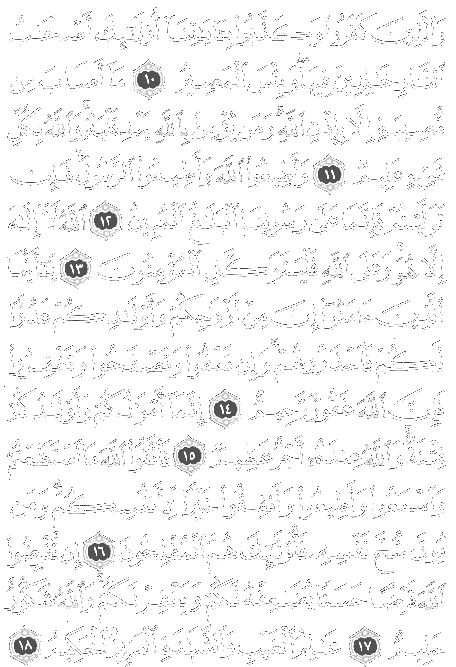 وَٱلَّذِينَ كَفَرُوا۟ وَكَذَّبُوا۟ بِـَٔايَـٰتِنَآ أُو۟لَـٰٓئِكَ أَصْحَـٰبُ
ٱلنَّارِ خَـٰلِدِينَ فِيهَا ۖ وَبِئْسَ ٱلْمَصِيرُ ١٠ مَآ أَصَابَ مِن
مُّصِيبَةٍ إِلَّا بِإِذْنِ ٱللَّهِ ۗ وَمَن يُؤْمِنۢ بِٱللَّهِ يَهْدِ قَلْبَهُۥ ۚ وَٱللَّهُ بِكُلِّ
شَىْءٍ عَلِيمٌ ١١ وَأَطِيعُوا۟ ٱللَّهَ وَأَطِيعُوا۟ ٱلرَّسُولَ ۚ فَإِن
تَوَلَّيْتُمْ فَإِنَّمَا عَلَىٰ رَسُولِنَا ٱلْبَلَـٰغُ ٱلْمُبِينُ ١٢ ٱللَّهُ لَآ إِلَـٰهَ
إِلَّا هُوَ ۚ وَعَلَى ٱللَّهِ فَلْيَتَوَكَّلِ ٱلْمُؤْمِنُونَ ١٣ يَـٰٓأَيُّهَا
ٱلَّذِينَ ءَامَنُوٓا۟ إِنَّ مِنْ أَزْوَٰجِكُمْ وَأَوْلَـٰدِكُمْ عَدُوًّا
لَّكُمْ فَٱحْذَرُوهُمْ ۚ وَإِن تَعْفُوا۟ وَتَصْفَحُوا۟ وَتَغْفِرُوا۟
فَإِنَّ ٱللَّهَ غَفُورٌ رَّحِيمٌ ١٤ إِنَّمَآ أَمْوَٰلُكُمْ وَأَوْلَـٰدُكُمْ
فِتْنَةٌ ۚ وَٱللَّهُ عِندَهُۥٓ أَجْرٌ عَظِيمٌ ١٥ فَٱتَّقُوا۟ ٱللَّهَ مَا ٱسْتَطَعْتُمْ
وَٱسْمَعُوا۟ وَأَطِيعُوا۟ وَأَنفِقُوا۟ خَيْرًا لِّأَنفُسِكُمْ ۗ وَمَن
يُوقَ شُحَّ نَفْسِهِۦ فَأُو۟لَـٰٓئِكَ هُمُ ٱلْمُفْلِحُونَ ١٦ إِن تُقْرِضُوا۟
ٱللَّهَ قَرْضًا حَسَنًا يُضَـٰعِفْهُ لَكُمْ وَيَغْفِرْ لَكُمْ ۚ وَٱللَّهُ شَكُورٌ
حَلِيمٌ ١٧ عَـٰلِمُ ٱلْغَيْبِ وَٱلشَّهَـٰدَةِ ٱلْعَزِيزُ ٱلْحَكِيمُ ١٨